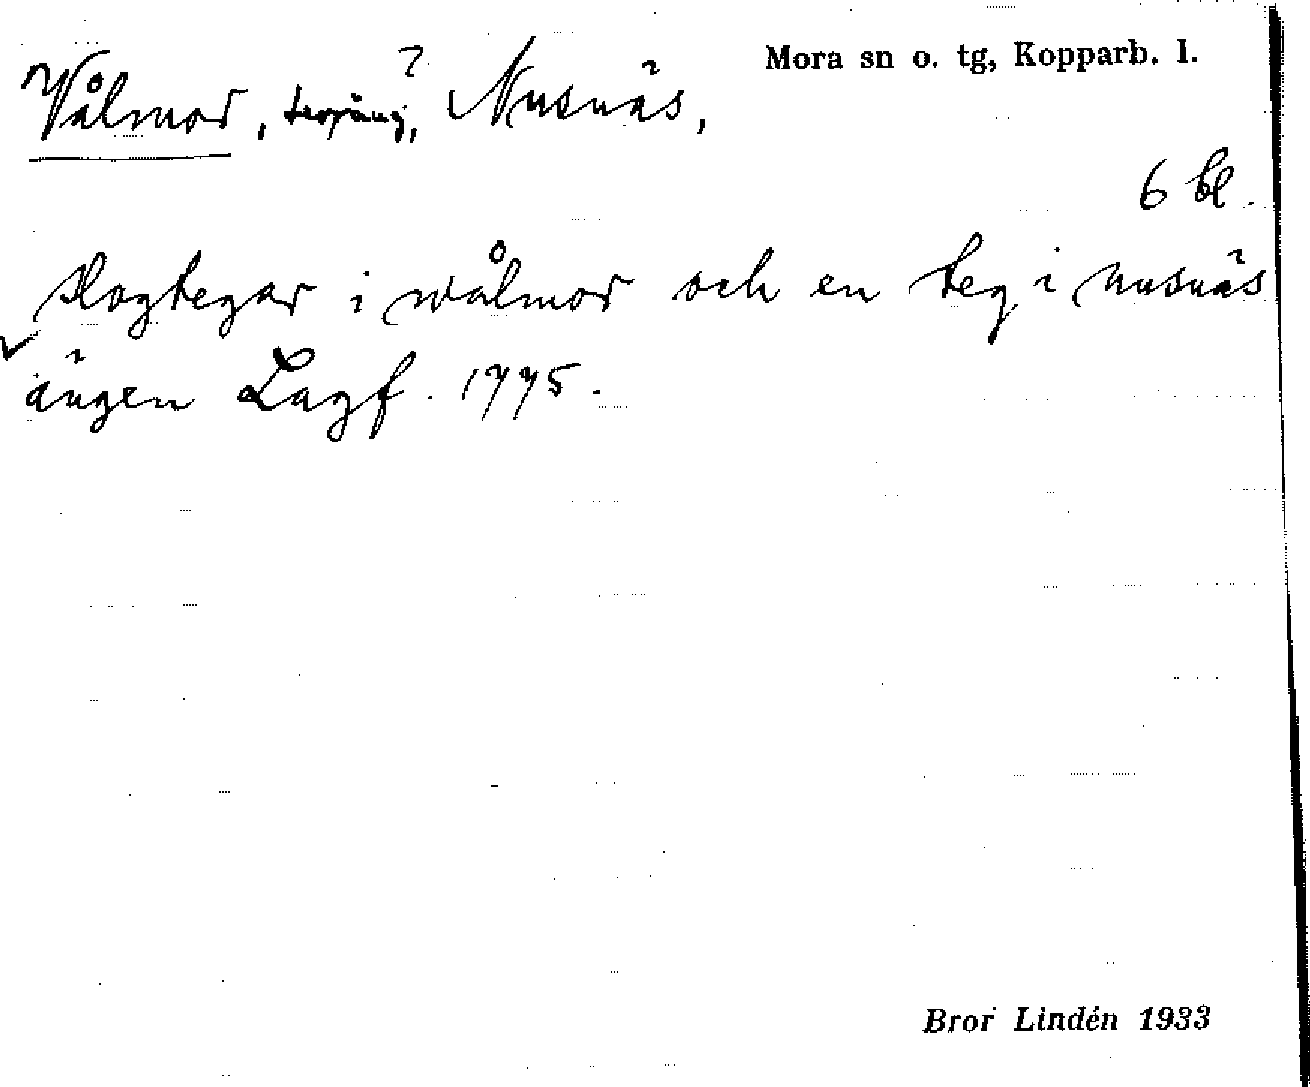 Mora sn o. tg, Kopparb. l.
Vålmor, teg, äng?, Nusnäs,
6 bl.
Slogtegar i wålmor och en teg i nusnäs
ängen Lagf. 1775.
Bror Lindén 1933